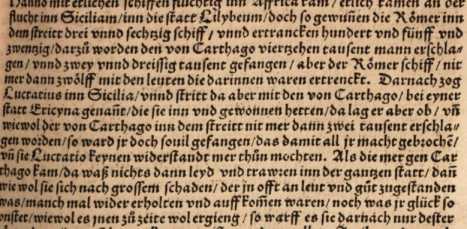 Hanno mit etlichen schiffen flüchtig inn Affrica kam/ etlich kamen an der
flucht inn Siciliam/inn die statt Lilybeum/doch so gewuñen die Römer inn
dem streit drei vnnd sechzig schiff/ vnnd ertrancken hundert vnd fünff vnd
zwenzig/darzů worden den von Carthago viertzehen tausent mann erschla-
gen/vnnd zwey vnnd dreissig tausent gefangen/ aber der Römer schiff/ nit
mer dann zwölff mit den leuten die darinnen waren ertrenckt. Darnach zog
Luctatius inn Sicilia/ vnnd stritt da aber mit den von Carthago/ bei eyner
statt Ericyna genañt/die sie inn vnd gewonnen hetten/da lag er aber ob/ vñ
wiewol der von Carthago inn dem streitt nit mer dann zwei tausent erschla-
gen worden/so ward jr doch souil gefangen/das damit all jr macht gebrochē/
vñ sie Luctatio keynen widerstandt mer thůn mochten. Als die mer gen Car
thago kam/da waß nichts dann leyd vnd trawren inn der gantzen statt/ dañ
wie wol sie sich nach grossem schaden/ der jn offt an leut vnd gůt zůgestanden
was/manch mal wider erholten vnd auffkom̃en waren/ noch was jr glück so
onstet/wiewol es jnen zů zeite wol ergieng/ so warff es sie darnach nur dester